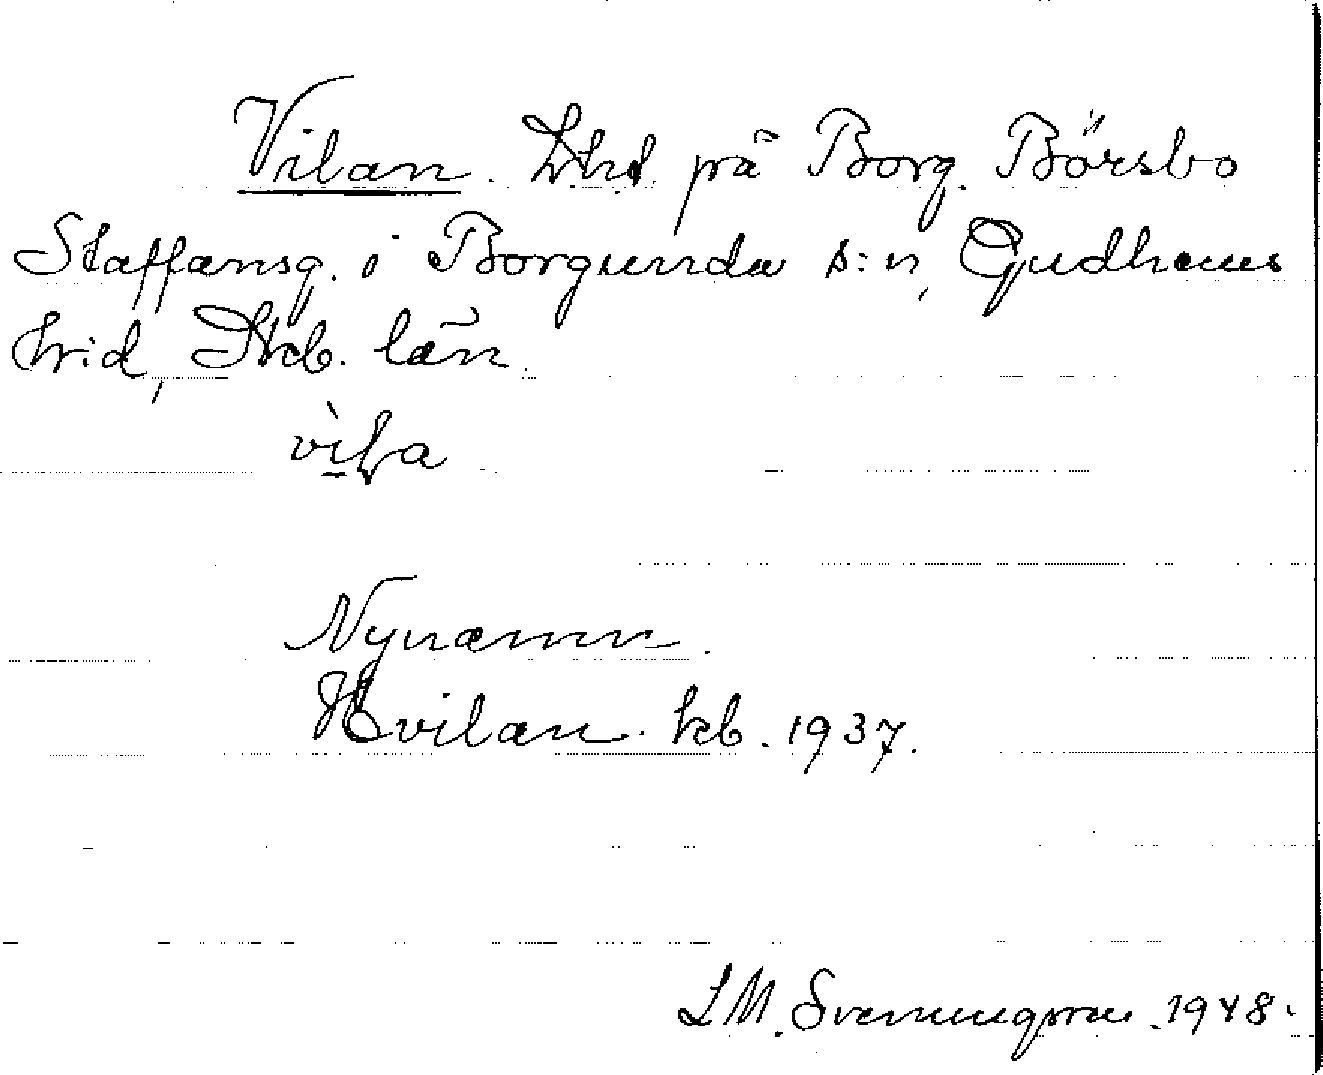 Vilan. Lht på Borg. Börsbo
Staffansg. i Borgunda s:n, Gudhems
hrid, Skb. län.
vìła
Nynamn.
Hvilan. kb. 1937.
L M. Svenungsson 1948.